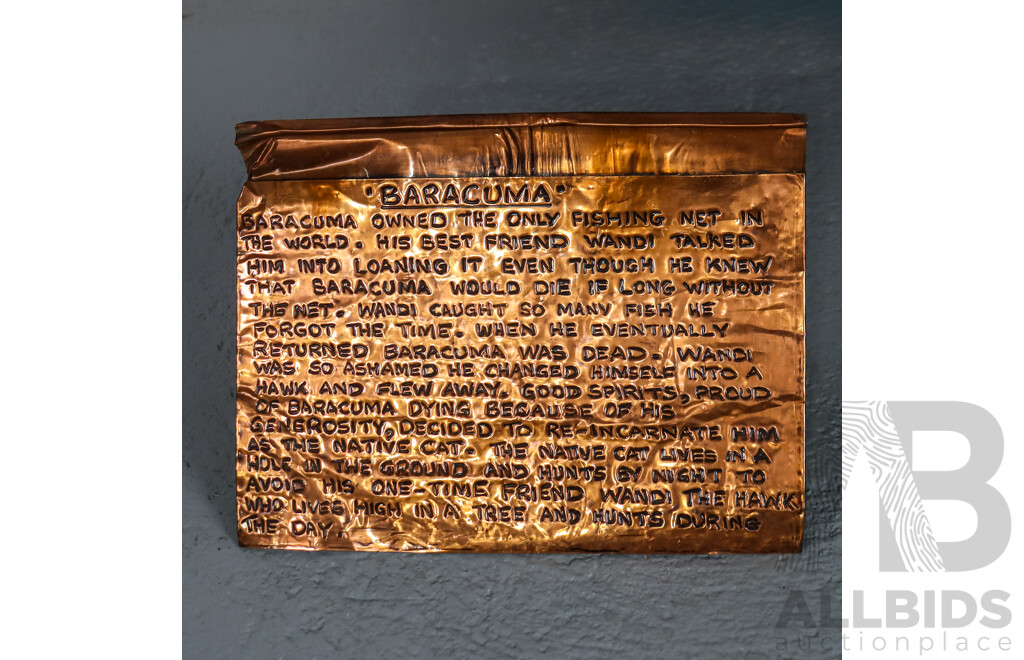 "BARACUMA"
BARACUMA OWNED THE ONLY FISHING NET IN
THE WORLD. HIS BEST FRIEND WANDI TALKED
HIM INTO LOANING IT EVEN THOUGH HE KNEW
THAT BARACUMA WOULD DIE IF LONG WITHOUT
THE NET. WANDI CAUGHT SO MANY FISH HE
FORGOT THE TIME. WHEN HE EVENTUALLY
RETURNED BARACUMA WAS DEAD. WANDI
WAS SO ASHAMED HE CHANGED HIMSELF INTO A
HAWK AND FLEW AWAY. GOOD SPIRITS, PROUD
OF BARACUMA DYING BECAUSE OF HIS
GENEROSITY, DECIDED TO RE-INCARNATE HIM
AS THE NATIVE CAT. THE NATIVE CAT LIVES IN A
HOLE IN THE GROUND AND HUNTS BY NIGHT TO
AVOID HIS ONE-TIME FRIEND WANDI THE HAWK
WHO LIVES HIGH IN A TREE AND HUNTS DURING
THE DAY.
AB
ALLBIDS
auctionplace